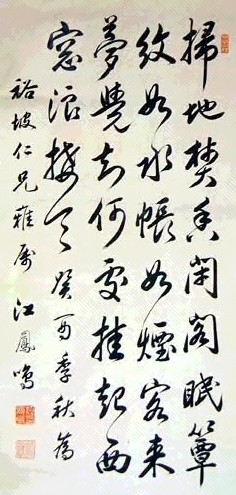 掃地焚香閉閣眠簟
紋如水帳如煙客來
夢覺知何處挂起西
窓浪接天 癸酉季秋為
裕坡仁兄雅屬 江鳳鳴